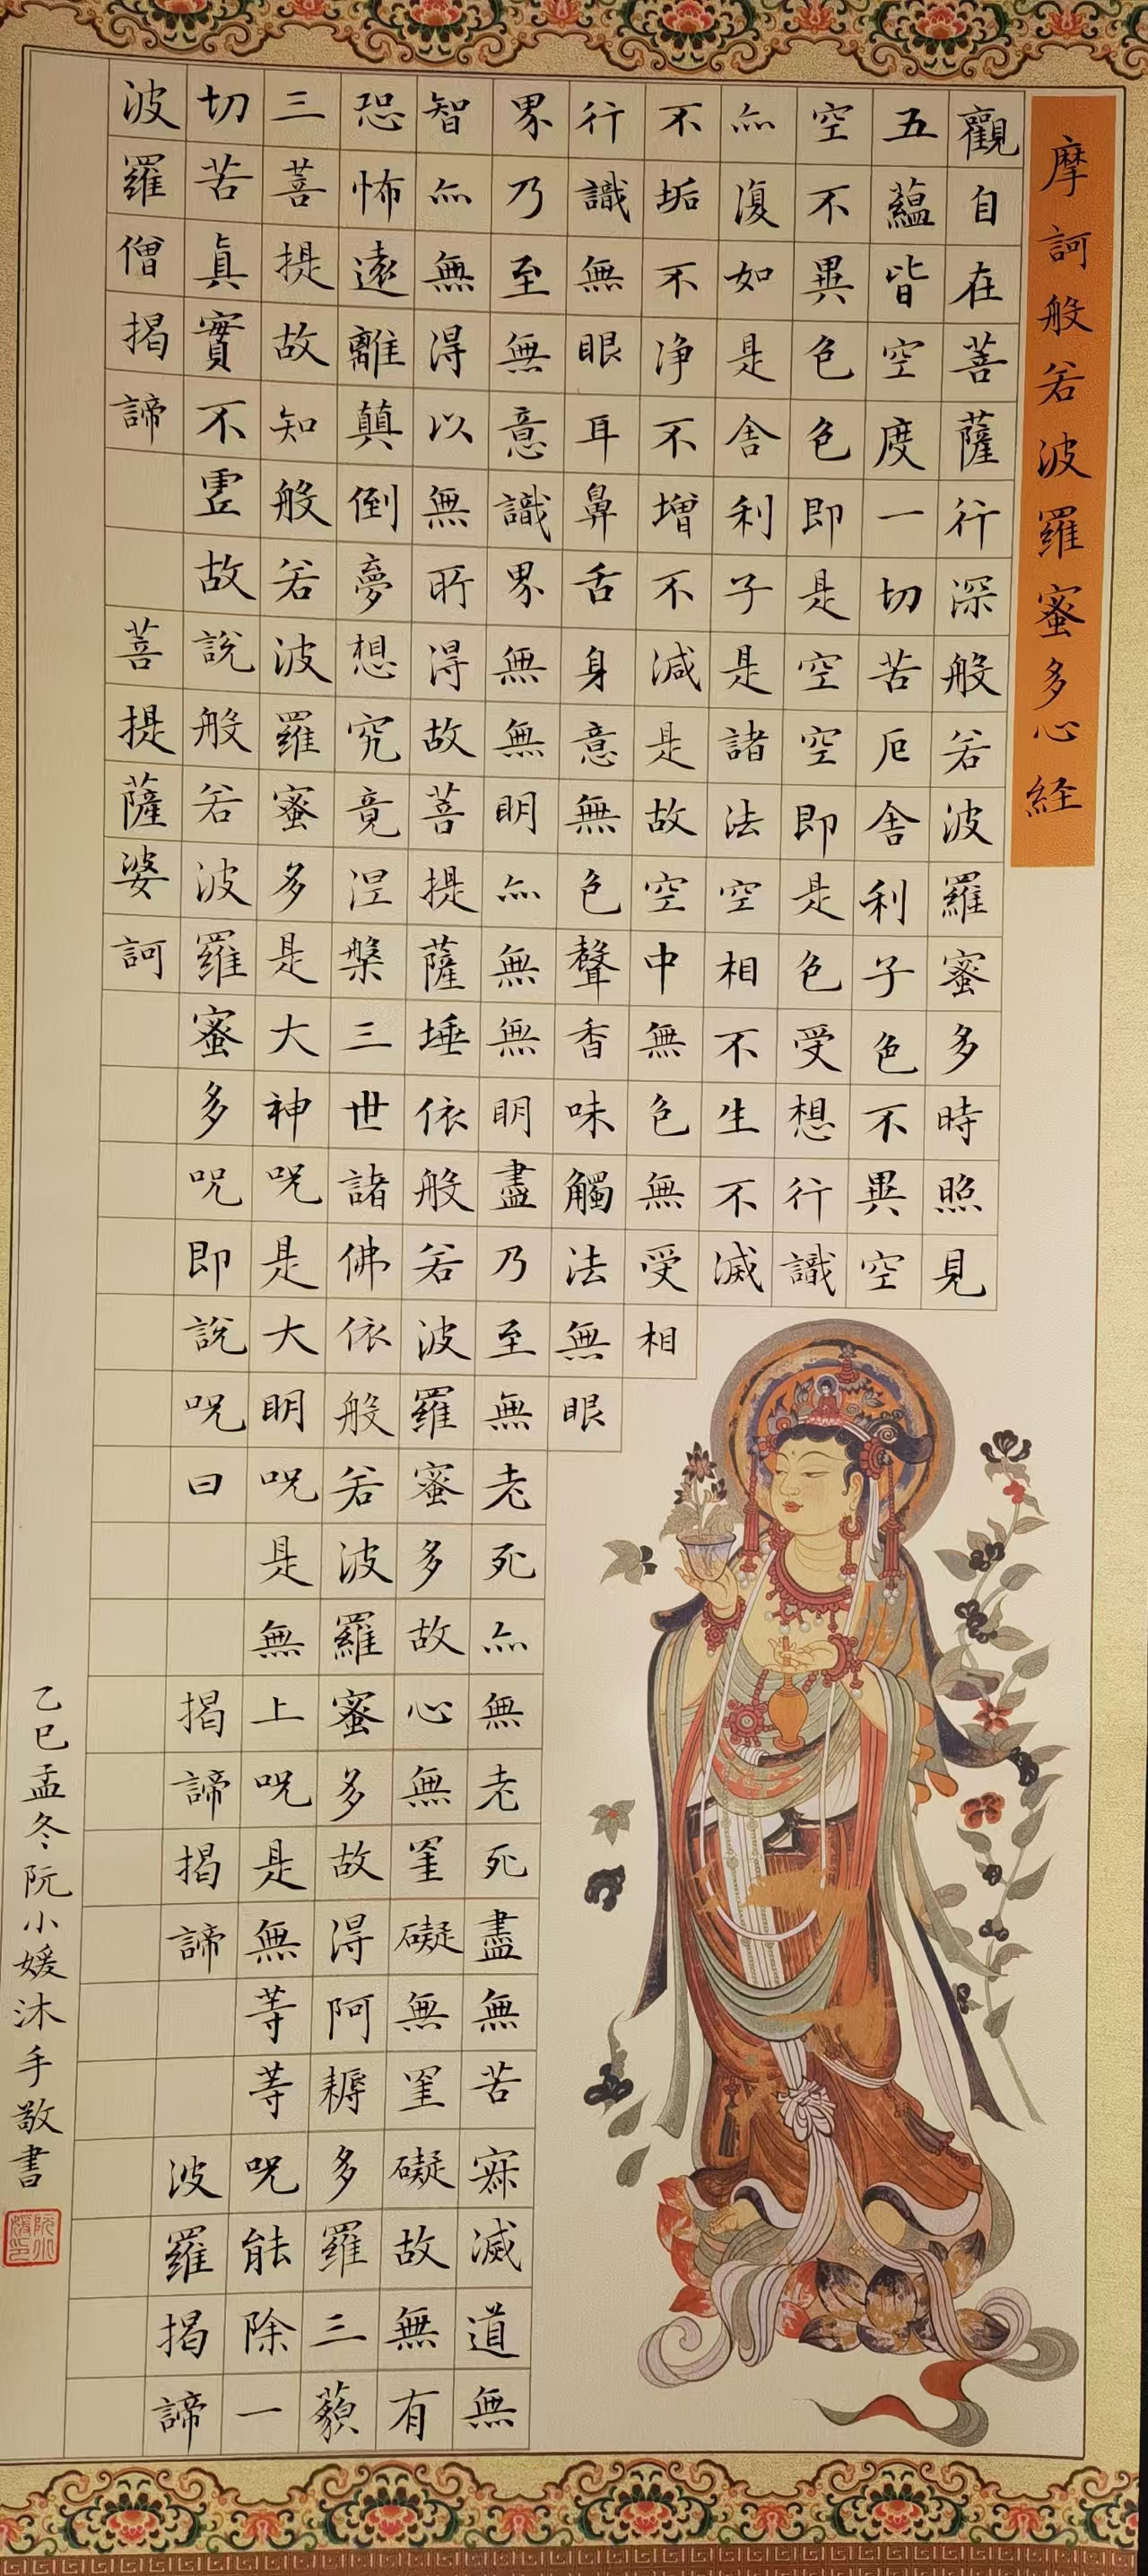 摩訶般若波羅蜜多心経
觀自在菩薩行深般若波羅蜜多時照見
五蘊皆空度一切苦厄舍利子色不異空
空不異色色即是空空即是色受想行識
亦復如是舍利子是諸法空相不生不滅
不垢不净不增不減是故空中無色無受相
行識無眼耳鼻舌身意無色聲香味觸法無眼
界乃至無意識界無無明亦無無明盡乃至無老死亦無老死盡無苦寂滅道無
智亦無得以無所得故菩提薩埵依般若波羅蜜多故心無罣礙無罣礙故無有
恐怖遠離顛倒夢想究竟涅槃三世諸佛依般若波羅蜜多故得阿耨多羅三藐
三菩提故知般若波羅蜜多是大神咒是大明咒是無上咒是無等等咒能除一
切苦真實不虛故說般若波羅蜜多咒即說咒曰 揭諦揭諦 波羅揭諦
波羅僧揭諦 菩提薩婆訶
乙巳孟冬阮小媛沐手敬書
阮小媛印